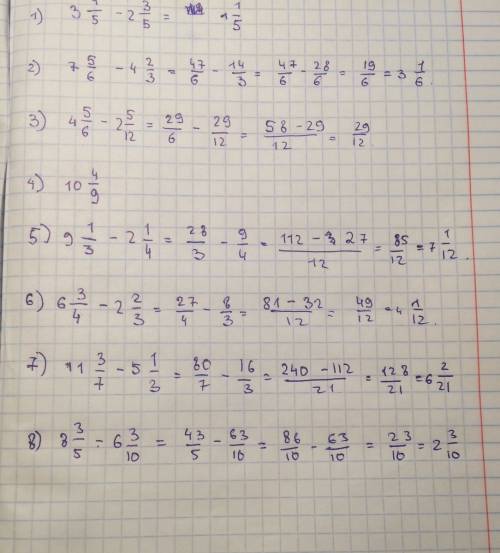 1) 3 4/5 - 2 3/5 = 1 1/5
2) 7 5/6 - 4 2/3 = 47/6 - 14/3 = 47/6 - 28/6 = 19/6 = 3 1/6.
3) 4 5/6 - 2 5/12 = 29/6 - 29/12 = 58-29/12 = 29/12.
4) 10 4/9
5) 9 1/3 - 2 1/4 = 28/3 - 9/4 = 112-27/12 = 85/12 = 7 1/12.
6) 6 3/4 - 2 2/3 = 27/4 - 8/3 = 81-32/12 = 49/12 = 4 1/12.
7) 11 3/7 - 5 1/3 = 80/7 - 16/3 = 240-112/21 = 128/21 = 6 2/21
8) 8 3/5 - 6 3/10 = 43/5 - 63/10 = 86/10 - 63/10 = 23/10 = 2 3/10